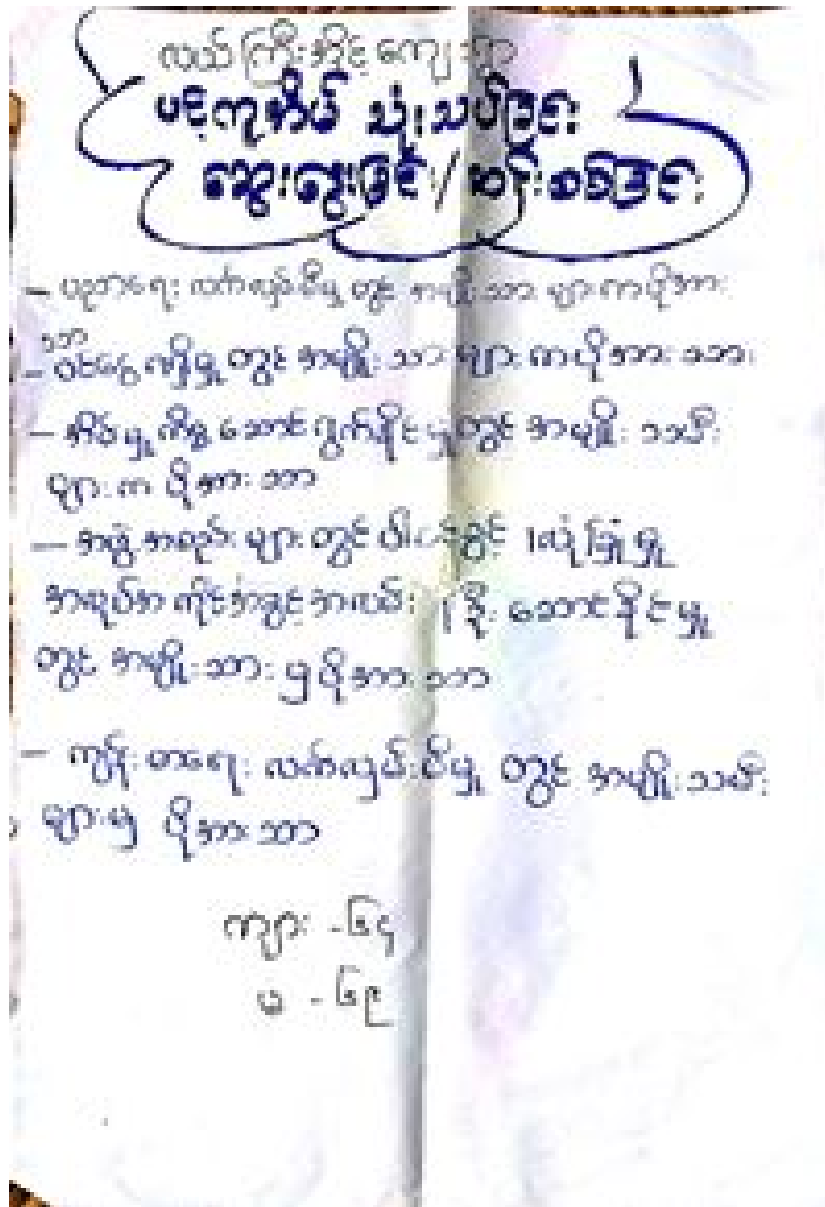 လယ်ကြီးအိုင့်ကျေးရွာ
ပင့်ကူအိမ် သုံးသပ်ခြင်း
ဆွေးနွေးခြင်း/ ဆန်းစစ်ခြင်း
- ပညာရေး လက်လှမ်းမီမှု တွင် အမျိုးသား များကပိုအား
သာ
- ဝင်ငွေ ကရှိမှု တွင် အမျိုးသား များ ကပိုအား သာ
- အိမ်မှုကိစ္စ ဆောင်ရွက်နိုင်မှုတွင် အမျိုးသမီး
များ က ပိုအား သာ
- အဖွဲ့ အစည်း များ တွင် ပါဝင်ခွင့် လုံခြုံမှု
အခွင့်အလမ်း ဆောင်နိုင်မှု
တွင် အမျိုးသား မှ ပိုအား သာ
- ကျန်းမာရေး လက်လှမ်းမီမှု တွင် အမျိုးသမီး
များမှ ပိုအားသာ
ကျား - ၆၄
မ - ၆၉